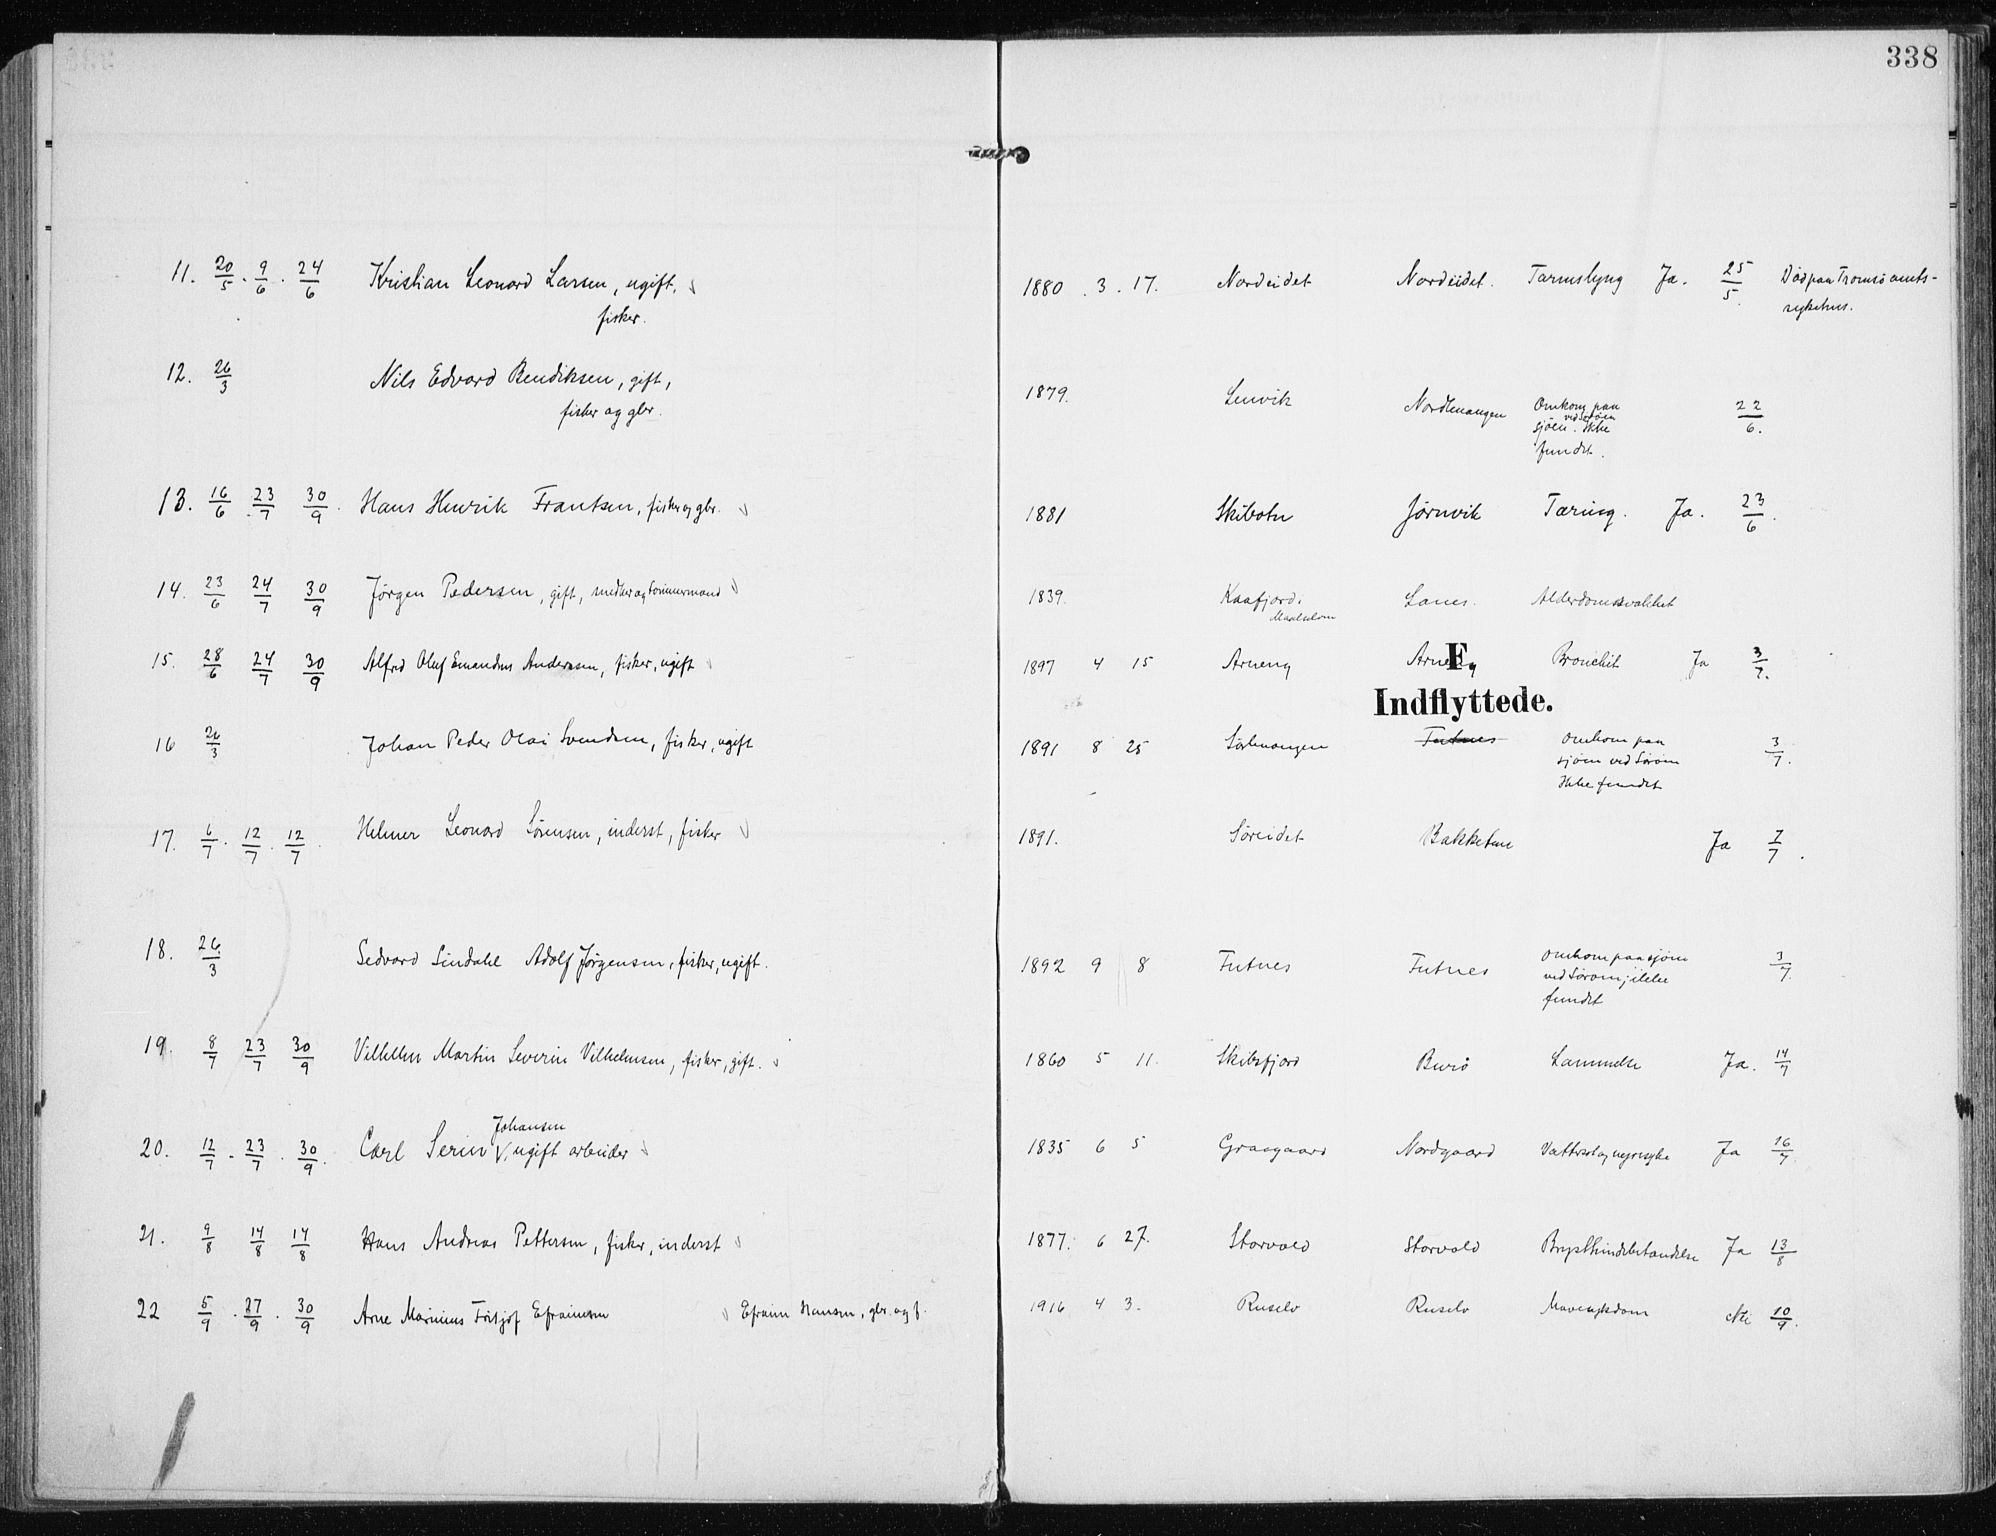 338
11. 20/5 . 9/6 . 24/6 Kristian Leonard Larsen, ugift, 1880 . 3 . 17. Nordeidet Nordeidet. Tarmslyng Ja. 25/5. Død paa Tromsø amts-
fisker. sykehus.
12. 26/3 Nils Edvard Bendiksen, gift, 1879. Lenvik Nordlenangen Omkom paa 22/6.
fisker og gbr. ved Sørøen
sjøen. Ikke
fundet.
13. 16/6 23/7 30/9. Hans Henrik Frantsen, fisker og gbr. 1881 Skibotn Jørnvik Tæring. Ja. 23/6.
14. 23/6 24/7 30/9 Jørgen Pedersen, gift, snedker og tømmermand 1839. Kaafjord. Lanes. Alderdomssvakhet
15. 28/6 24/7 30/9 Alfred Oluf Emandus Andersen, fisker, ugift 1897 4 15 Arnøy Arnøy Bronchit Ja 3/7.
F
Indflyttede.
16 26/3 Johan Peder Olai Svendsen, fisker, ugift 1891 8 25 Sørlenangen Futnes Omkom paa 3/7.
sjøen ved Sørøen
Ikke fundet
17. 6/7 . 12/7 . 12/7. Helmer Leonard Sørensen, inderst, fisker 1891. Søreidet Bakketun Ja 7/7.
18. 26/3 Sedvard Lindahl Adolf Jørgensen, fisker, ugift. 1892 9 8 Futnes Futnes Omkom paa sjøen 3/7.
ved Sørøen; ikke
fundet
19. 8/7 23/7 30/9 Vilhelm Martin Severin Vilhelmsen, fisker, gift. 1860 5 11. Skibsfjord Burø Lammelse Ja. 14/7
Johansen
20. 12/7 . 23/7 . 30/9. Carl Serin , ugift arbeider 1835 6 5 Graagaard Nordgaard Vattersot og nyresyke Ja 16/7.
21. 9/8 14/8 14/8 Hans Andreas Pettersen, fisker, inderst 1877. 6 27. Storvold Storvold Brysthindebetændelse Ja 13/8
22 5/9 . 27/9 . 30/9 Arne Marinius Fritjof Efraimsen Efraim Hansen, gbr. og f. 1916 4 3. Ruselv Ruselv Mavesykdom Nei 10/9.